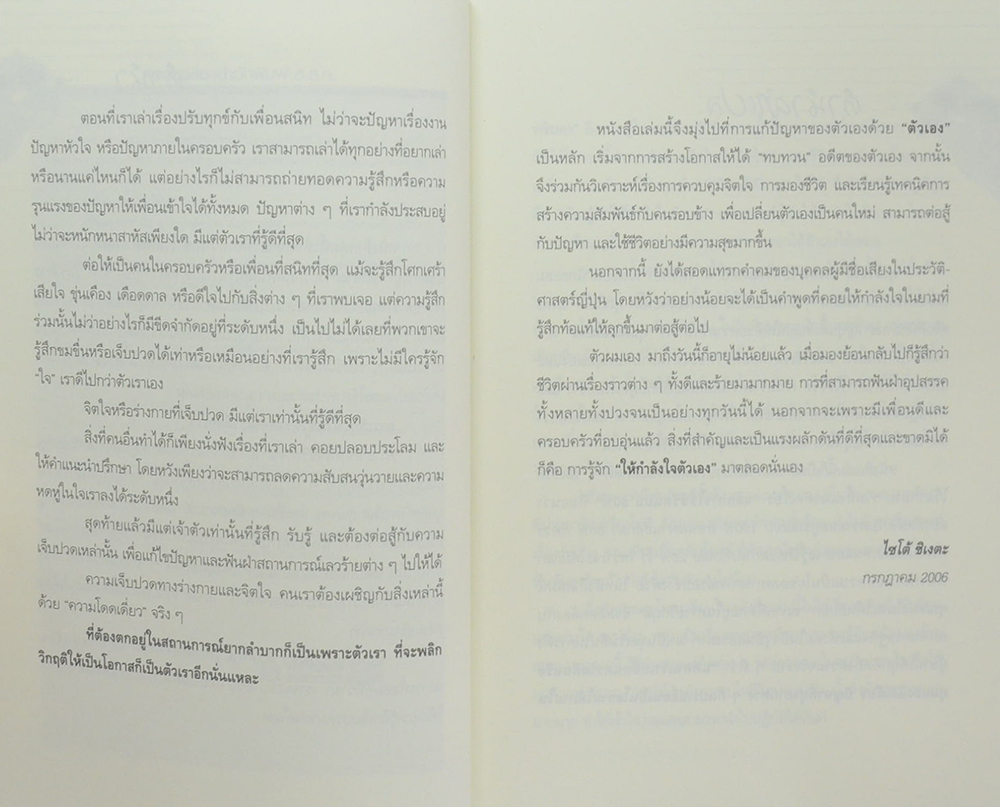 ตอนที่เราเล่าเรื่องปรับทุกข์กับเพื่อนสนิท ไม่ว่าจะปัญหาเรื่องงาน
ปัญหาหัวใจ หรือปัญหาภายในครอบครัว เราสามารถเล่าได้ทุกอย่างที่อยากเล่า
หรือนานแค่ไหนก็ได้ แต่อย่างไรก็ไม่สามารถถ่ายทอดความรู้สึกหรือความ
รุนแรงของปัญหาให้เพื่อนเข้าใจได้ทั้งหมด ปัญหาต่าง ๆ ที่เรากำลังประสบอยู่
ไม่ว่าจะหนักหนาสาหัสเพียงใด มีแต่ตัวเราที่รู้ดีที่สุด
ต่อให้เป็นคนในครอบครัวหรือเพื่อนที่สนิทที่สุด แม้จะรู้สึกโศกเศร้า
เสียใจ ขุ่นเคือง เดือดดาล หรือดีใจไปกับสิ่งต่าง ๆ ที่เราพบเจอ แต่ความรู้สึก
ร่วมนั้นไม่ว่าอย่างไรก็มีขีดจำกัดอยู่ที่ระดับหนึ่ง เป็นไปไม่ได้เลยที่พวกเขาจะ
รู้สึกขมขื่นหรือเจ็บปวดได้เท่าหรือเหมือนอย่างที่เรารู้สึก เพราะไม่มีใครรู้จัก
"ใจ" เราดีไปกว่าตัวเราเอง
จิตใจหรือร่างกายที่เจ็บปวด มีแต่เราเท่านั้นที่รู้ดีที่สุด
สิ่งที่คนอื่นทำได้ก็เพียงนั่งฟังเรื่องที่เราเล่า คอยปลอบประโลม และ
ให้คำแนะนำปรึกษา โดยหวังเพียงว่าจะสามารถลดความสับสนวุ่นวายและความ
หดหู่ในใจเราลงได้ระดับหนึ่ง
สุดท้ายแล้วมีแต่เจ้าตัวเท่านั้นที่รู้สึก รับรู้ และต้องต่อสู้กับความ
เจ็บปวดเหล่านั้น เพื่อแก้ไขปัญหาและฟันฝ่าสถานการณ์เลวร้ายต่าง ๆ ไปให้ได้
ความเจ็บปวดทางร่างกายและจิตใจ คนเราต้องเผชิญกับสิ่งเหล่านี้
ด้วย "ความโดดเดี่ยว" จริง ๆ
ที่ต้องตกอยู่ในสถานการณ์ยากลำบากก็เป็นเพราะตัวเรา ที่จะพลิก
วิกฤติให้เป็นโอกาสก็เป็นตัวเราอีกนั่นแหละ
หนังสือเล่มนี้จึงมุ่งไปที่การแก้ปัญหาของตัวเองด้วย "ตัวเอง"
เป็นหลัก เริ่มจากการสร้างโอกาสให้ได้ "ทบทวน" อดีตของตัวเอง จากนั้น
จึงร่วมกันวิเคราะห์เรื่องการควบคุมจิตใจ การมองชีวิต และเรียนรู้เทคนิคการ
สร้างความสัมพันธ์กับคนรอบข้าง เพื่อเปลี่ยนตัวเองเป็นคนใหม่ สามารถต่อสู้
กับปัญหา และใช้ชีวิตอย่างมีความสุขมากขึ้น
นอกจากนี้ ยังได้สอดแทรกคำคมของบุคคลผู้มีชื่อเสียงในประวัติ-
ศาสตร์ญี่ปุ่น โดยหวังว่าอย่างน้อยจะได้เป็นคำพูดที่คอยให้กำลังใจในยามที่
รู้สึกท้อแท้ให้ลุกขึ้นมาต่อสู้ต่อไป
ตัวผมเอง มาถึงวันนี้ก็อายุไม่น้อยแล้ว เมื่อมองย้อนกลับไปก็รู้สึกว่า
ชีวิตผ่านเรื่องราวต่าง ๆ ทั้งดีและร้ายมามากมาย การที่สามารถฟันฝ่าอุปสรรค
ทั้งหลายทั้งปวงจนเป็นอย่างทุกวันนี้ได้ นอกจากจะเพราะมีเพื่อนดีและ
ครอบครัวที่อบอุ่นแล้ว สิ่งที่สำคัญและเป็นแรงผลักดันที่ดีที่สุดและขาดมิได้
ก็คือ การรู้จัก "ให้กำลังใจตัวเอง" มาตลอดนั่นเอง
ไซโต้ ชิเงตะ
กรกฎาคม 2006